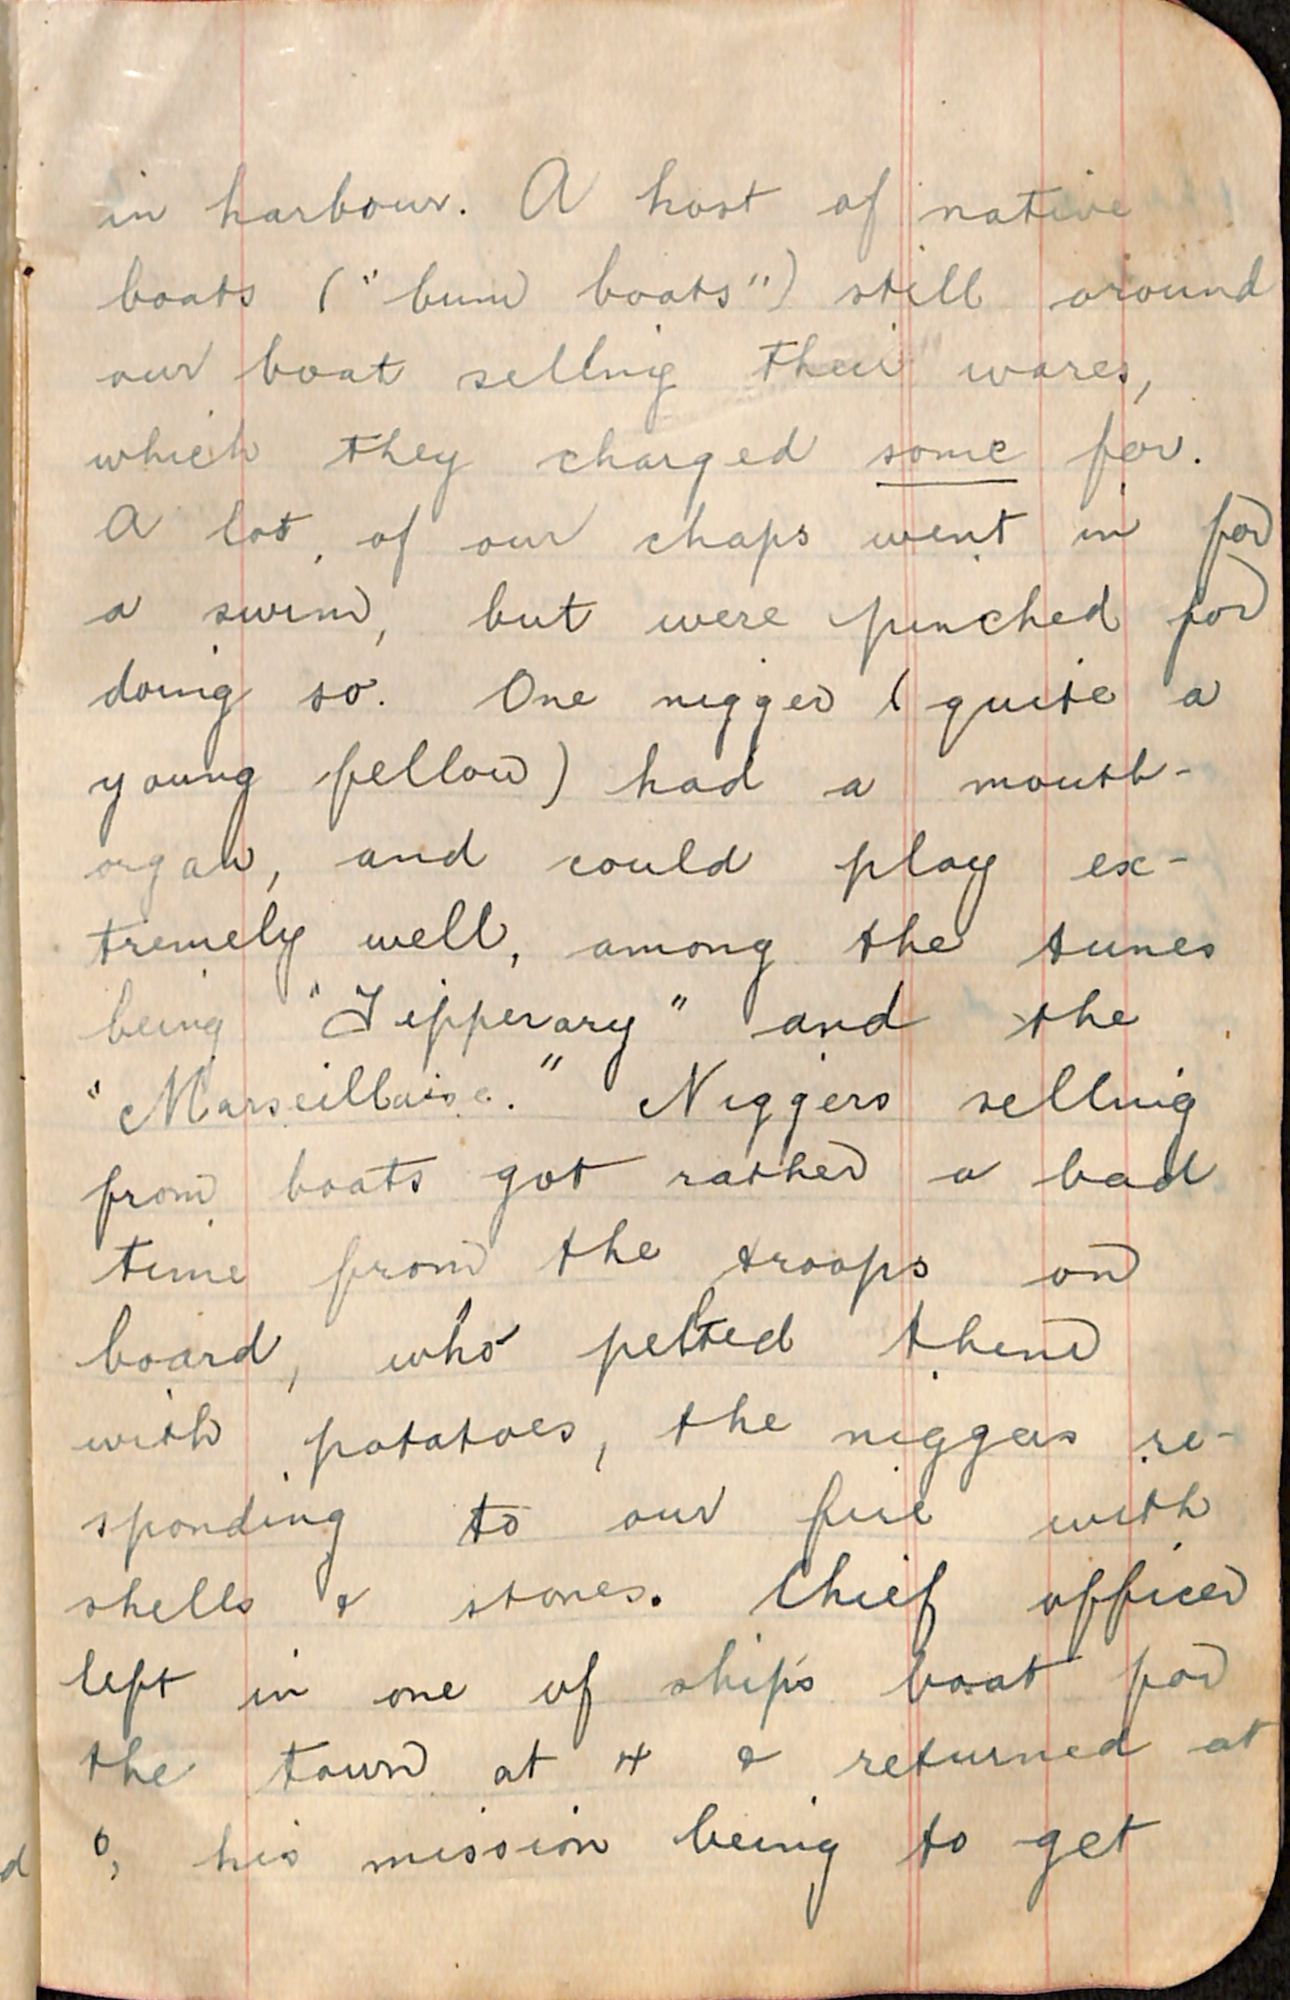 in harbour. A host of native
boats ("bum boats") still around
our boat selling their wares,
which they charged some for.
A lot of our chaps went in for
a swim, but were pinched for
doing so. One nigger (quite a
young fellow) had a mouth-
organ, and could play ex-
tremely well, among the tunes
being "Tipperary" and the
"Marseillaise." Niggers selling
from boats got rather a bad
time from the troops on
board, who pelted them
with potatoes, the niggers re-
sponding to our fire with
shells & stones. Chief officer
left in one of ship's boat for
the town at 4 & returned at
6, his mission being to get
d